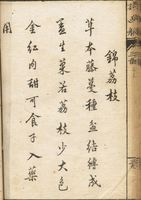 錦荔枝
草本藤蔓種盆結縷成
蓋生菓若荔枝少大色
金紅肉甜可食子入藥
用